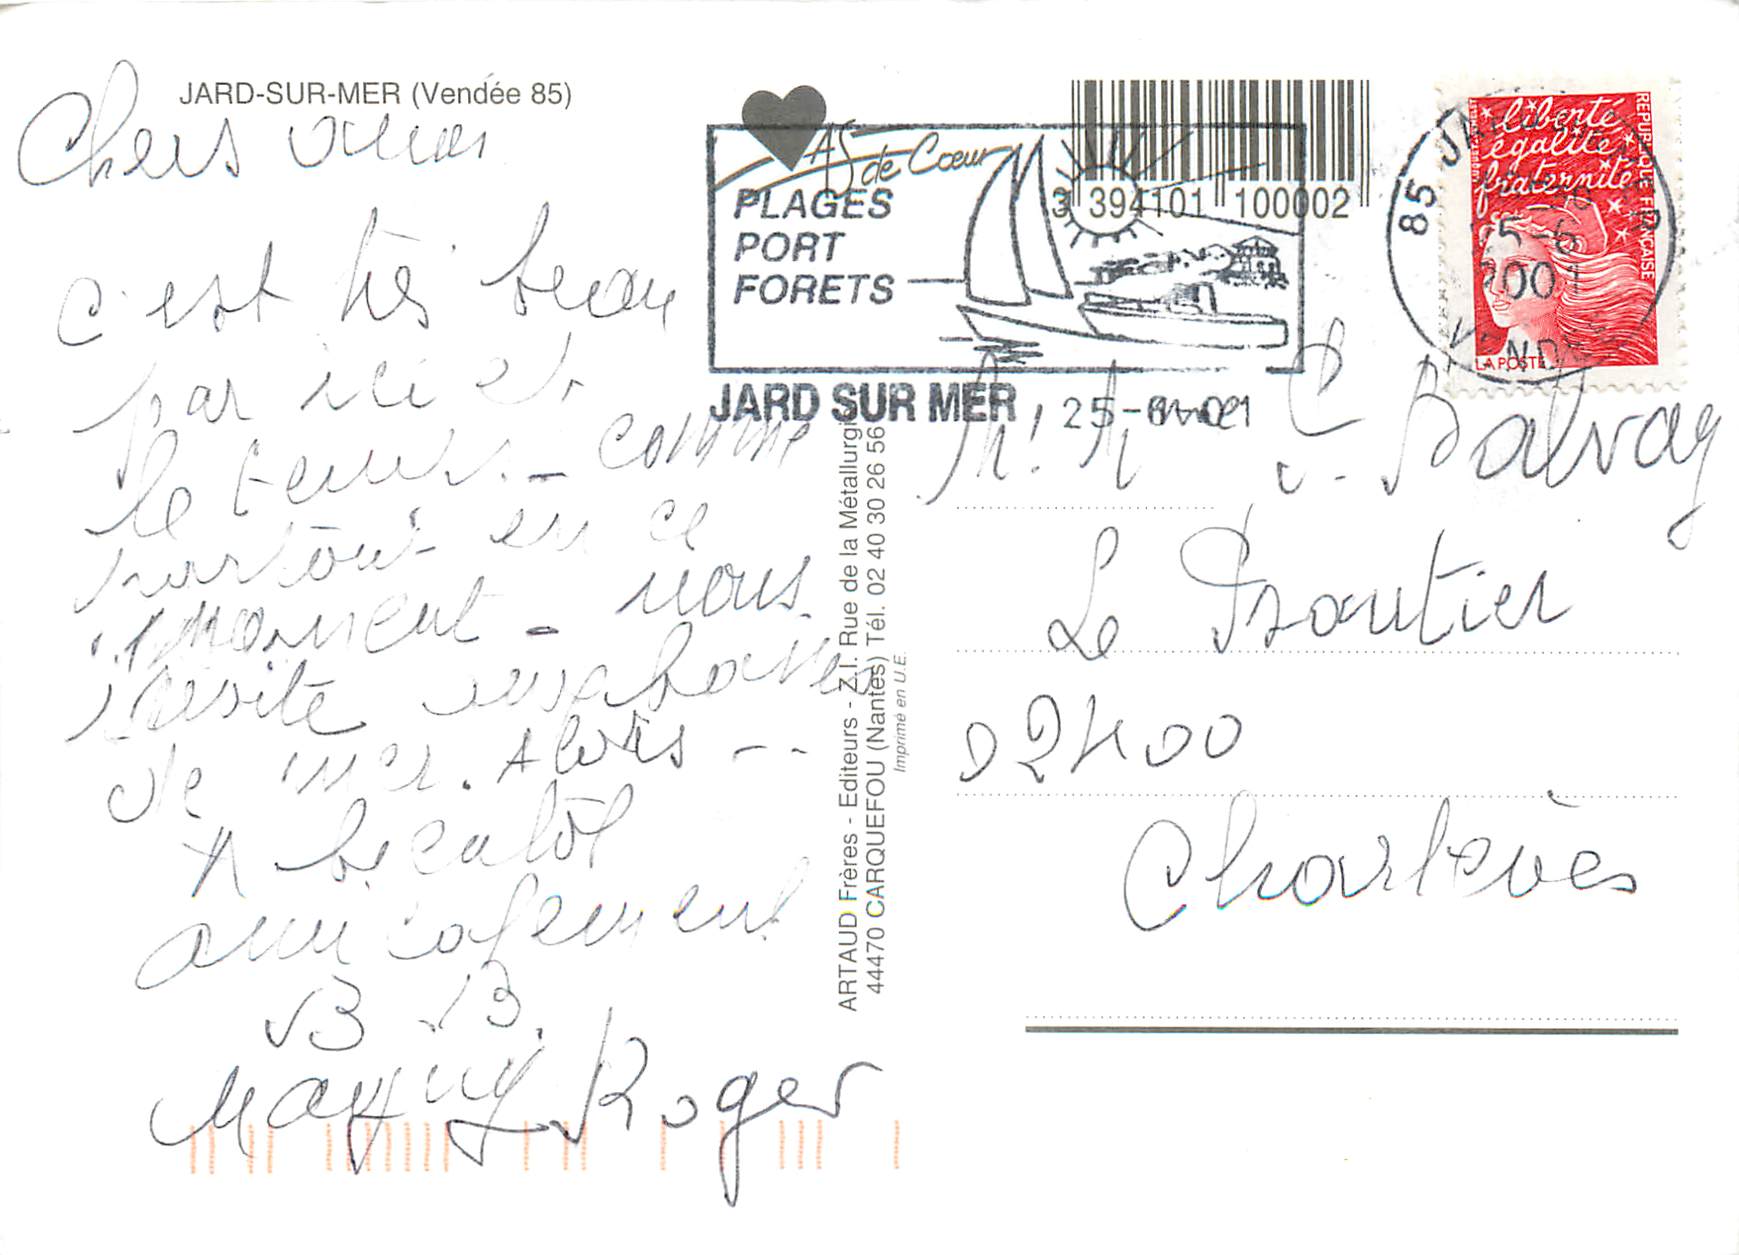 JARD-SUR-MER (Vendée 85)
Chers amis
c'est très beau
par ici et
le temps - comme
partout en ce
moment - nous
visite en chaises
de mer. Alors --
A bientôt
amicalement
B. B.
Roger
AS de Cœur
PLAGES
PORT
FORETS
JARD SUR MER
3 394101 100002
25-
liberté
égalité
fraternité
REPUBLIQUE FRANÇAISE
LA POSTE
85 JARD
2001
VENDEE
ARTAUD Frères - Editeurs - Z.I. Rue de la Métallurgi
44470 CARQUEFOU (Nantes) Tél. 02 40 30 26 56
Imprimé en U.E.
C. Balvay
Le
02400
Chartèves